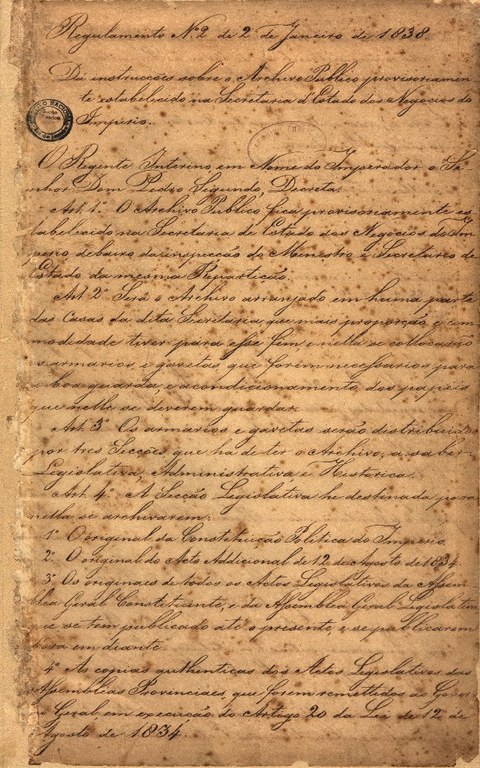 Regulamento Nº2 de 2 de Janeiro de 1838.
Dá instrucções sobre o Archivo Publico provisoriamen-
te estabelecido na Secretaria d'Estado dos Negocios do
Imperio.
O Regente Interino, em Nome do Imperador o Se-
nhor Dom Pedro Segundo, Decreta:
Art. 1º O Archivo Publico fica provisoriamente es-
tabelecido na Secretaria de Estado dos Negocios do Im-
perio debaixo da inspecção do Ministro e Secretario de
Estado da mesma Repartição.
Art. 2º Será o Archivo arranjado em huma parte
das Casas da dita Secretaria que mais proporção e com-
modidade tiver para esse fim, e nella se collocarão
os armarios e gavetas que forem necessarios para
a boa guarda e acondicionamento dos papeis
que nella se deverem guardar.
Art. 3º Os armarios e gavetas serão distribuidos
por tres Secções que ha de ter o Archivo, a saber:
Legislativa, Administrativa e Historica.
Art. 4º A Secção Legislativa he destinada para
nella se archivarem:
1º O original da Constituição Politica do Imperio.
2º O original do Acto Addicional de 12 de Agosto de 1834.
3º Os originaes de todos os Actos Legislativos da Assem-
blea Geral Constituinte, e da Assemblea Geral Legislativa
que se tem publicado até o presente, e se publicarem
para em diante.
4º As copias authenticas dos Actos Legislativos das
Assembleas Provinciaes, que forem remettidas ao Governo
Geral em execução do Artigo 20 da Lei de 12 de
Agosto de 1834.